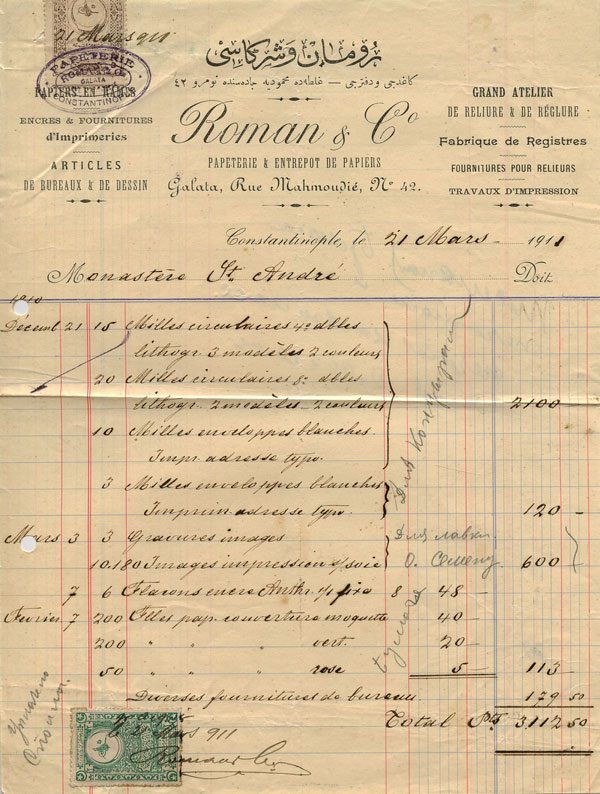 21 Mars 911
PAPETERIE
ROMAN & Co
GALATA
CONSTANTINOPLE
رومان وشركاسی
كاغدجی ودفترجی — غلطه‌ده محموديه جاده‌سنده نومرو ٤٢
PAPIERS EN RAMES
ENCRES & FOURNITURES
d'Imprimeries
ARTICLES
DE BUREAUX & DE DESSIN
Roman & Co
PAPETERIE & ENTREPOT DE PAPIERS
Galata, Rue Mahmoudié, No 42.
GRAND ATELIER
DE RELIURE & DE RÉGLURE
Fabrique de Registres
FOURNITURES POUR RELIEURS
TRAVAUX D'IMPRESSION
Constantinople, le 21 Mars 1911
Monastère St. André Doit
1910
Décemb 21 15 Milles circulaires 4o dbles
lithogr. 3 modèles 2 couleurs
20 Milles circulaires 8o dbles
lithogr. 2 modèles 2 couleurs 2100 —
10 Milles enveloppes blanches
Impr. adresse typo.
3 Milles enveloppes blanches
Imprim. adresse typo. 120 —
Mars 3 3 Gravures images
10.180 Images impression s/soie 600 —
7 6 Flacons encre Anthr. 8 48 —
Février 7 200 Flles pap. couverture moquette 40 —
200 " " " vert. 20 —
50 " " " rose 5 — 113 —
Diverses fournitures de bureau 179 50
Total Pts 3112 50
Для лавки
О.
21 Mars 911
Roman & Co